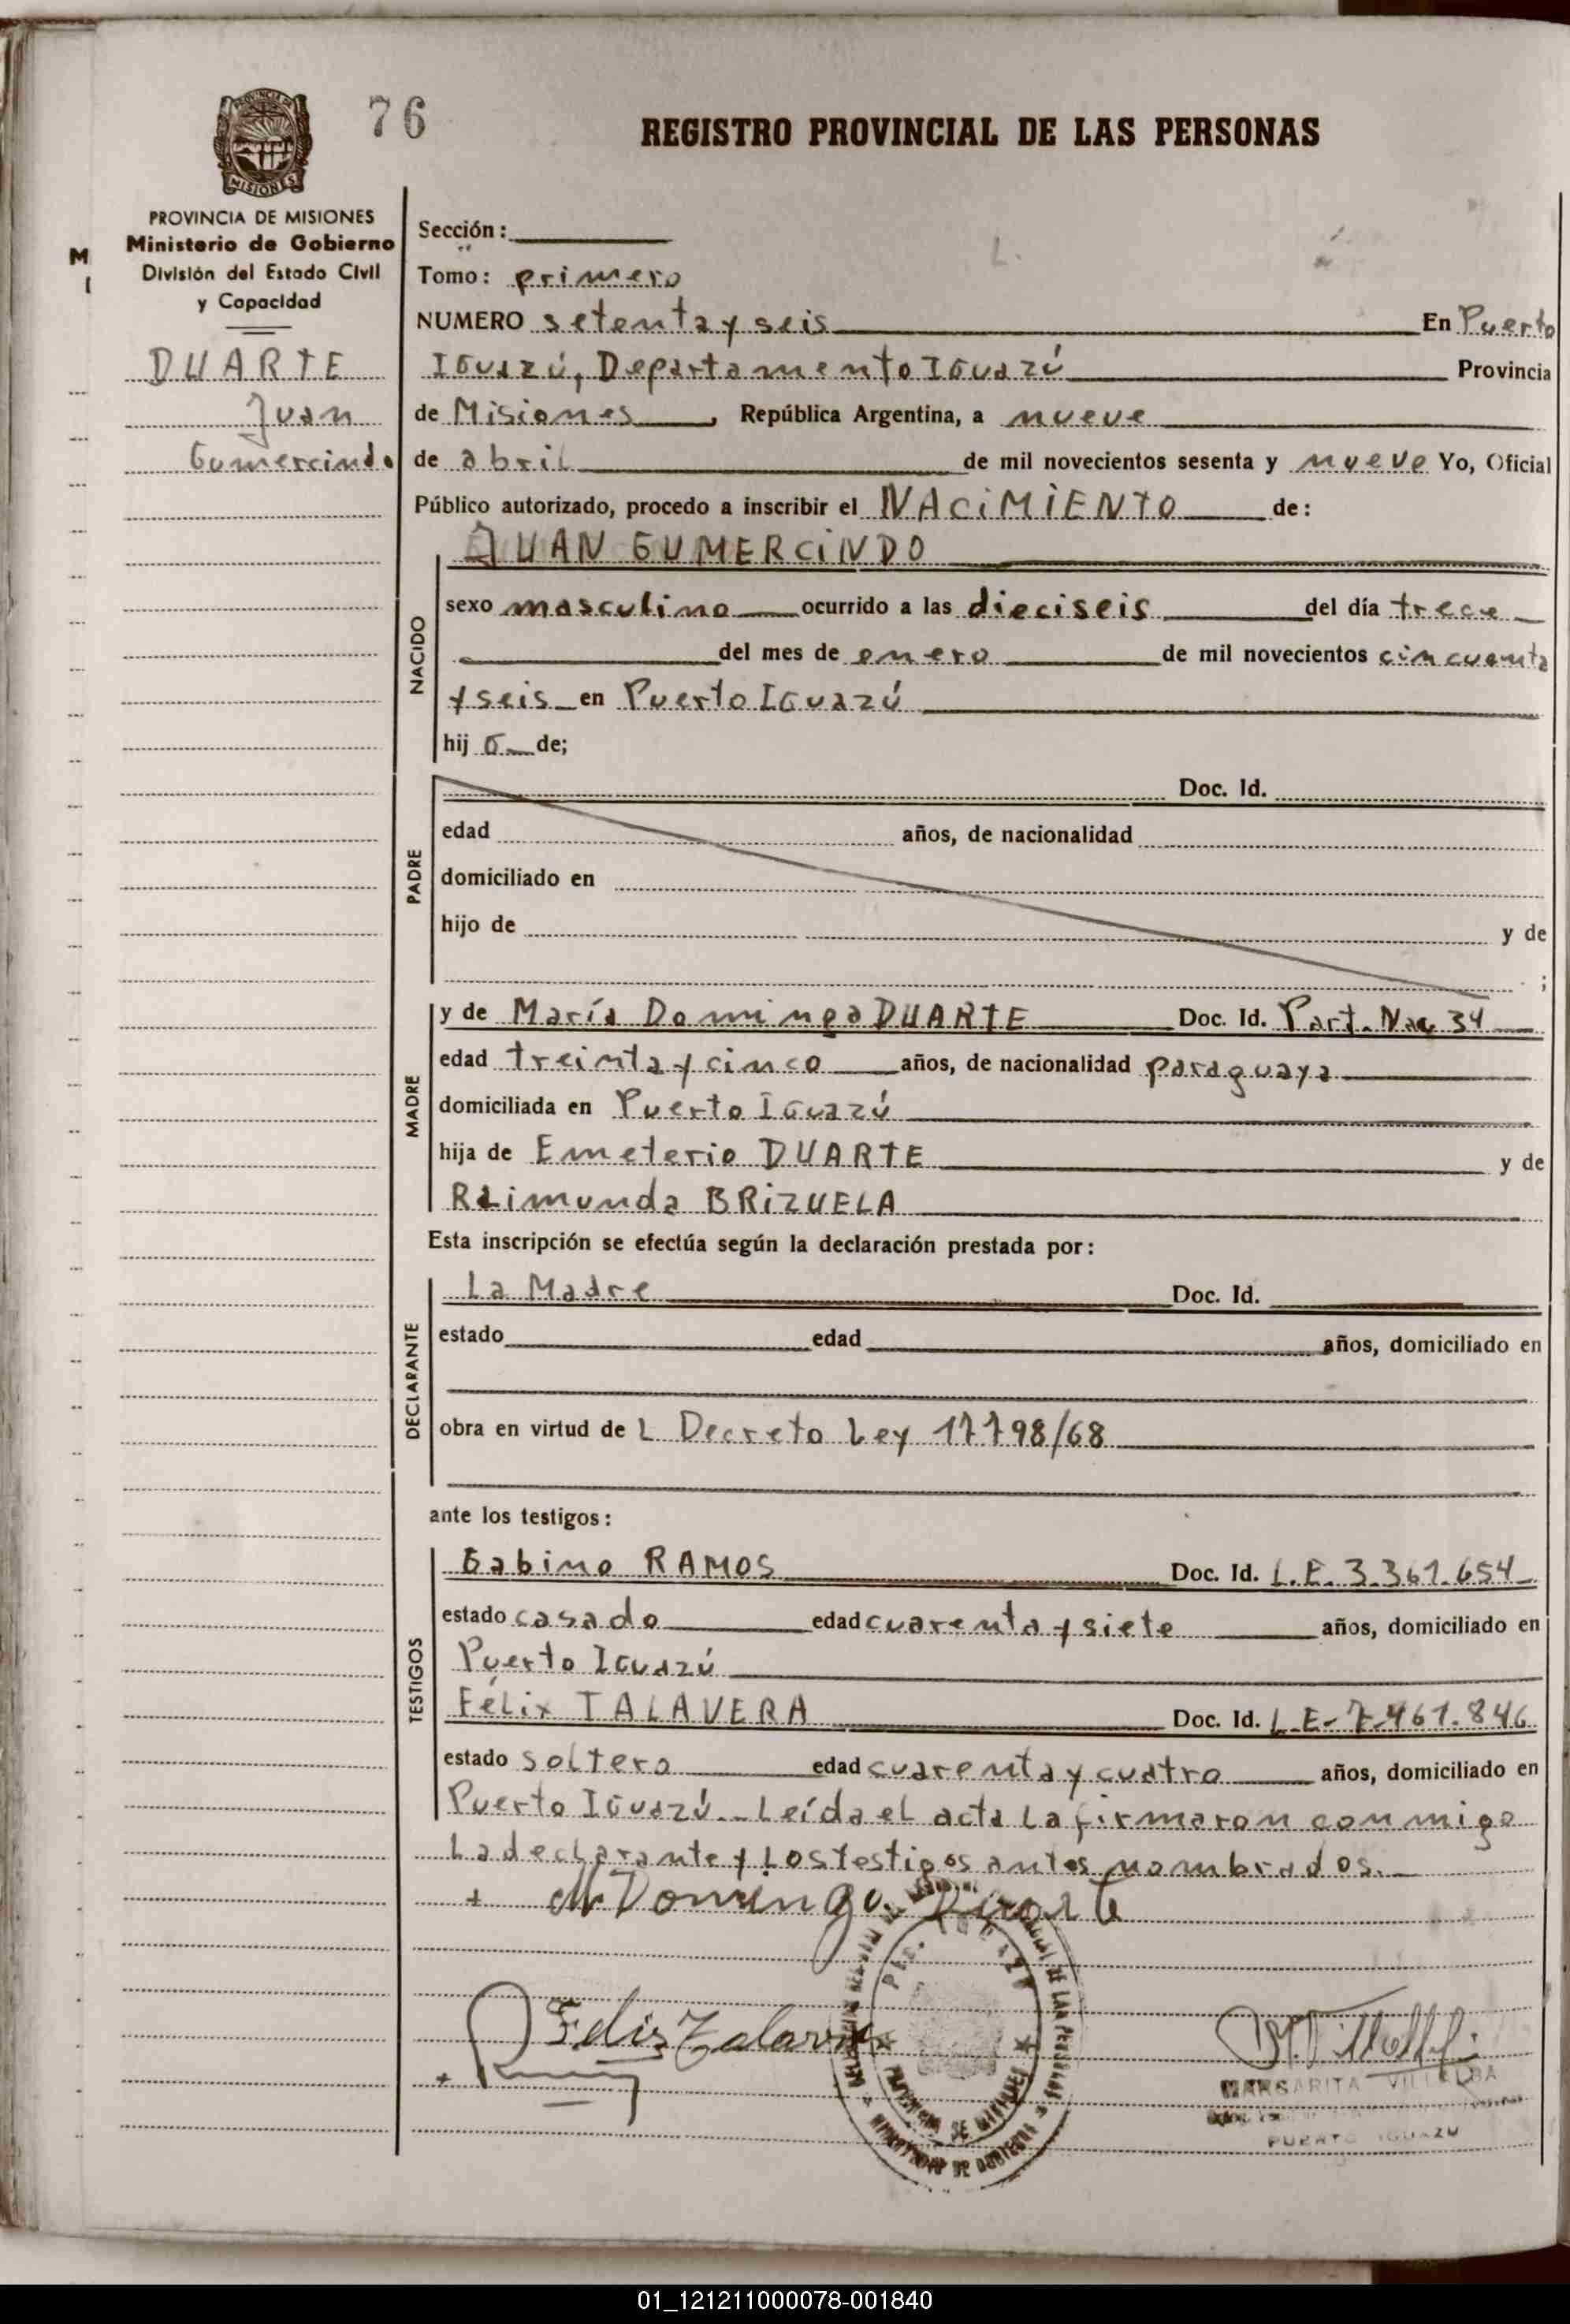 76
REGISTRO PROVINCIAL DE LAS PERSONAS
MISIONES
PROVINCIA DE MISIONES
Ministerio de Gobierno
División del Estado Civil
y Capacidad
M
I
DUARTE
Juan
Gumercindo
Sección:
Tomo: primero
NUMERO setenta y seis En Puerto
Iguazú, Departamento Iguazú Provincia
de Misiones, República Argentina, a nueve
de abril de mil novecientos sesenta y nueve Yo, Oficial
Público autorizado, procedo a inscribir el NACIMIENTO de:
JUAN GUMERCINDO
NACIDO
sexo masculino ocurrido a las dieciseis del día trece
del mes de enero de mil novecientos cincuenta
y seis en Puerto Iguazú
hij o de;
PADRE
Doc. Id.
edad años, de nacionalidad
domiciliado en
hijo de y de
;
MADRE
y de María Dominga DUARTE Doc. Id. Part. Nac 34
edad treinta y cinco años, de nacionalidad paraguaya
domiciliada en Puerto Iguazú
hija de Emeterio DUARTE y de
Raimunda BRIZUELA
Esta inscripción se efectúa según la declaración prestada por:
DECLARANTE
La Madre Doc. Id.
estado edad años, domiciliado en
obra en virtud de L Decreto Ley 17798/68
ante los testigos:
TESTIGOS
Gabino RAMOS Doc. Id. L.E. 3.361.654
estado casado edad cuarenta y siete años, domiciliado en
Puerto Iguazú
Félix TALAVERA Doc. Id. L.E-7.461.846
estado soltero edad cuarenta y cuatro años, domiciliado en
Puerto Iguazú.-Leída el acta la firmaron conmigo
la declarante y los testigos antes nombrados.
+ M Dominga Duarte
Felix Talavera
+
PROVINCIA DE MISIONES
MINISTERIO DE GOBIERNO
DE LAS PERSONAS
MARGARITA VILLALBA
PUERTO IGUAZU
01_121211000078-001840